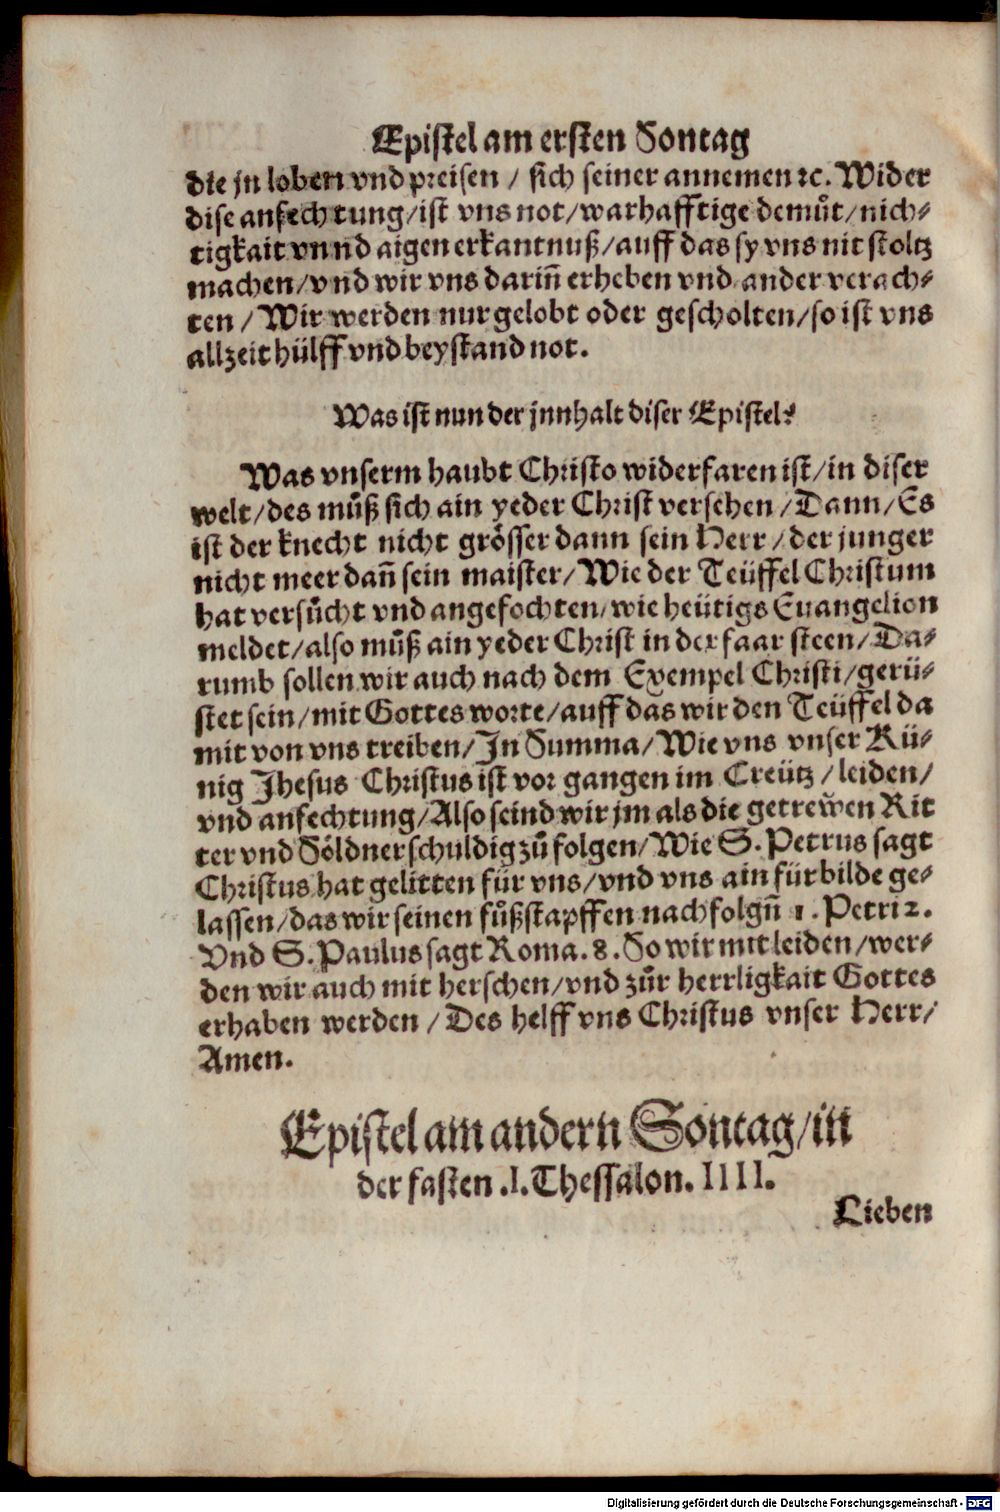 Epistel am ersten Sontag
die jn loben vnd preisen / sich seiner annemen ꝛc. Wider
dise anfechtung/ist vns not/warhafftige demuͤt/nich⸗
tigkait vnnd aigen erkantnuß/auff das sy vns nit stoltz
machen/vnd wir vns darin̄ erheben vnd ander verach⸗
ten / Wir werden nur gelobt oder gescholten/so ist vns
allzeit hülff vnd beystand not.
Was ist nun der jnnhalt diser Epistel?
Was vnserm haubt Christo widerfaren ist/in diser
welt/des muͤß sich ain yeder Christ versehen /Dann/Es
ist der knecht nicht grösser dann sein Herr /der junger
nicht meer dan̄ sein maister/Wie der Teüffel Christum
hat versuͤcht vnd angefochten/wie heütigs Euangelion
meldet/also muͤß ain yeder Christ in der faar steen/Da⸗
rumb sollen wir auch nach dem Exempel Christi/gerü⸗
stet sein/mit Gottes worte/auff das wir den Teüffel da
mit von vns treiben/In Summa/Wie vns vnser Kü⸗
nig Jhesus Christus ist vor gangen im Creütz /leiden/
vnd anfechtung/Also seind wir jm als die getrewen Rit
ter vnd Söldner schuldig zuͤ folgen/Wie S. Petrus sagt
Christus hat gelitten für vns/vnd vns ain fürbilde ge⸗
lassen/das wir seinen fuͤßstapffen nachfolgn̄ 1. Petri 2.
Vnd S. Paulus sagt Roma. 8. So wir mit leiden/wer⸗
den wir auch mit herschen/vnd zuͤr herrligkait Gottes
erhaben werden /Des helff vns Christus vnser Herr/
Amen.
Epistel am andern Sontag/in
der fasten .I. Thessalon. IIII.
Lieben
Digitalisierung gefördert durch die Deutsche Forschungsgemeinschaft - DFG